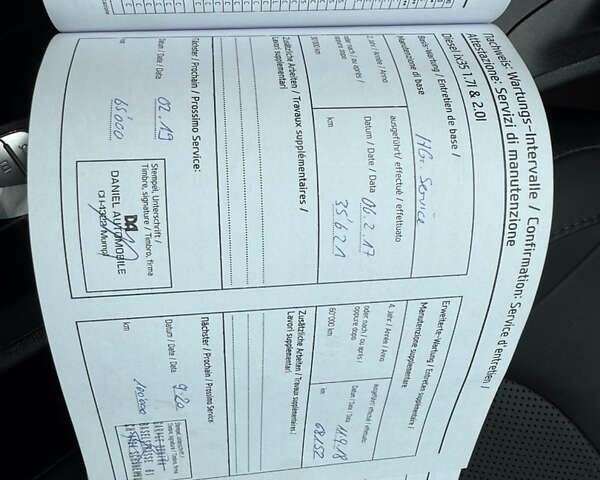 Nachweis: Wartungs-Intervalle / Confirmation: Service d'entretien /
Attestazione: Servizi di manutenzione
Diesel ix35 1.7l & 2.0l
Basis-Wartung / Entretien de base /
Manutenzione di base
HG. Service
2. Jahr / Année / Anno
oder nach / ou après /
oppure dopo
30'000 km
ausgeführt / effectué / effettuato
Datum / Date / Data 06.2.17
km 35'621
Zusätzliche Arbeiten / Travaux supplémentaires /
Lavori supplementari
Nächster / Prochain / Prossimo Service:
Datum / Date / Data 02.19
km 65'000
Stempel, Unterschrift /
Timbre, signature / Timbro, firma
DA
DANIEL AUTOMOBILE
Mumpf
Erweiterte-Wartung / Entretien supplémentaire /
Manutenzione supplementare
4. Jahr / Année / Anno
oder nach / ou après /
oppure dopo
60'000 km
Datum / Date / Data
km
Zusätzliche Arbeiten / Travaux supplémentaires /
Lavori supplementari
Nächster / Prochain / Prossimo Service
Datum / Date / Data 9.20
km 100'000
Stempel, Unterschrift /
Timbre, signature / Timbro, firma